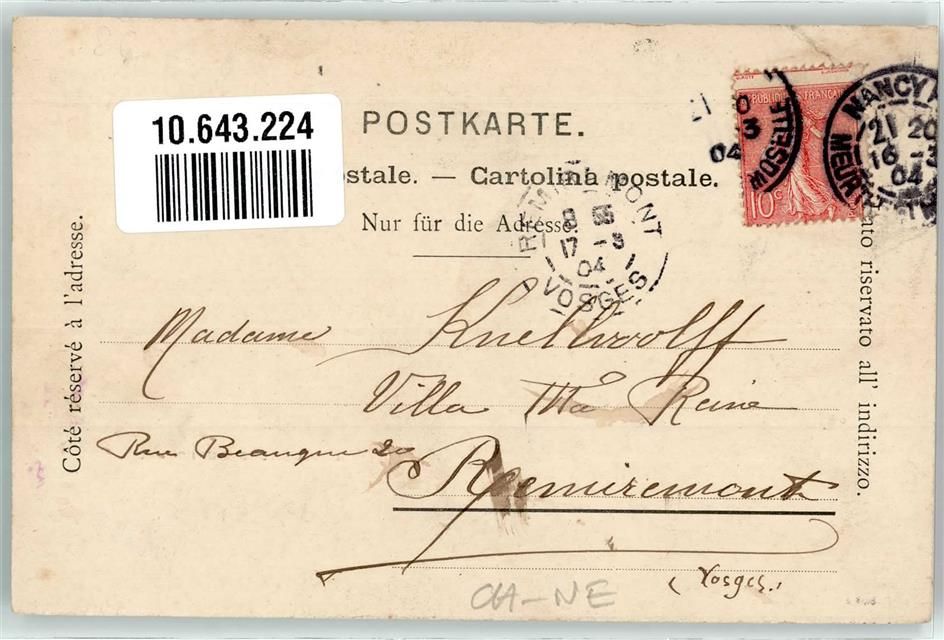 10.643.224
POSTKARTE.
stale. — Cartolina postale.
Nur für die Adresse.
Côté réservé à l'adresse.
ato riservato all' indirizzo.
REPUBLIQUE FRANÇAISE
10c
MOSELLE
04
NANCY
21 20
16 - 3
04
REMIREMONT
17 - 3
04
VOSGES
Madame Knellwolff
Villa Ma Reine
Rue 20
Remiremont
(Vosges.)
CH-NE